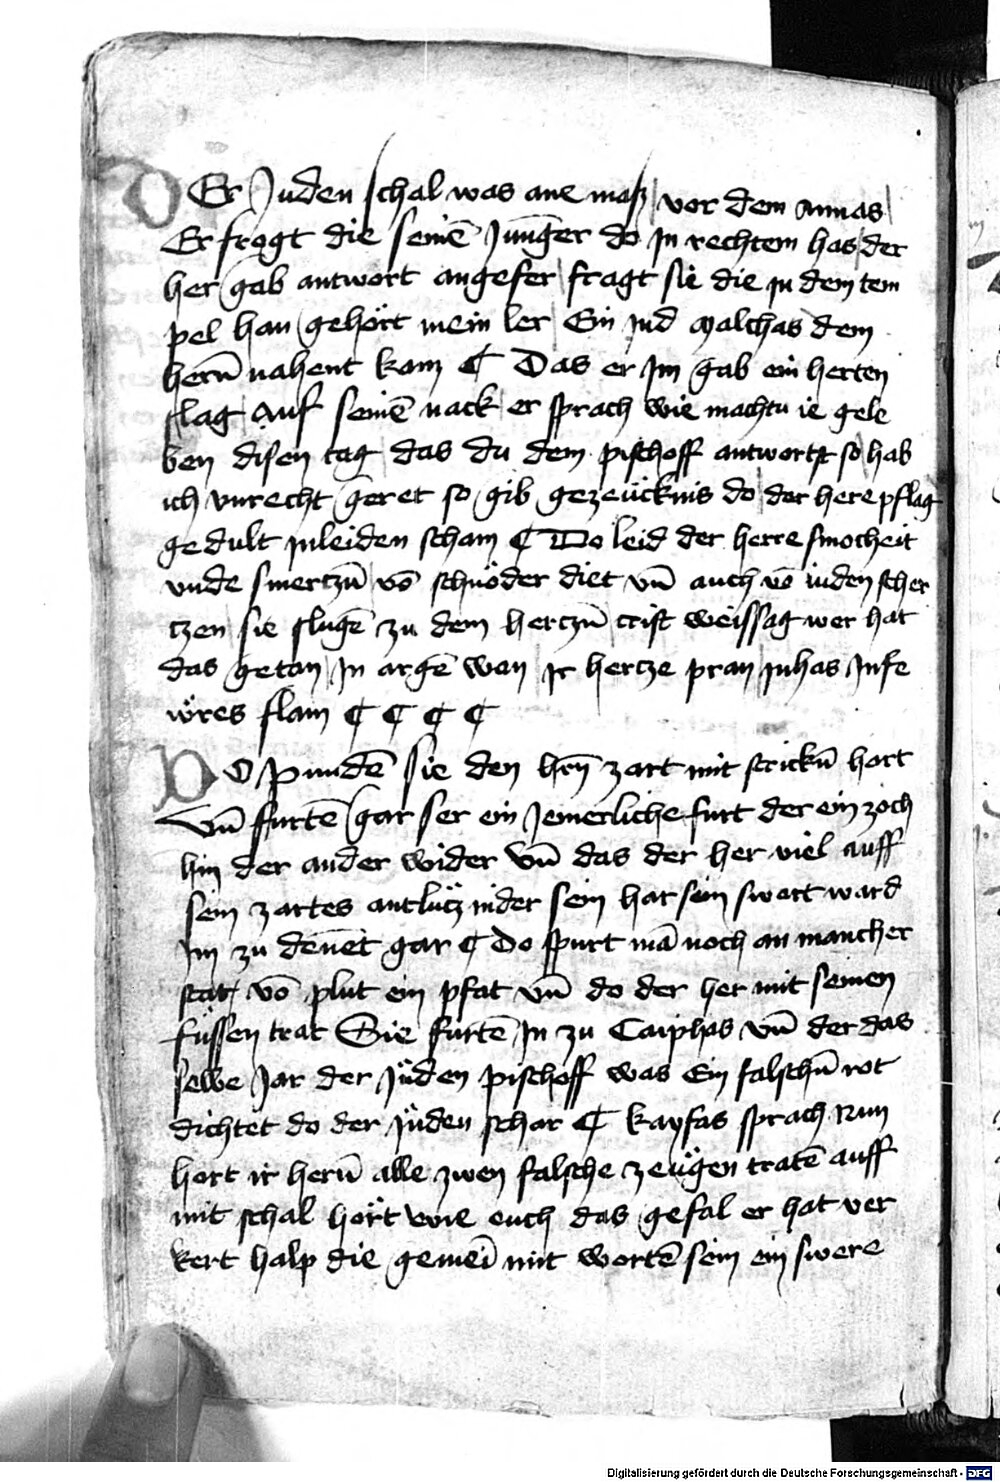 DEr Juden schal was ane masz vor dem Annas
Er fragt die seinē Junger do jn rechtem has der
her gab antwort angefer fragt sie die jn dem tem
pel han gehört mein ler Ein jud Malchas dem
herñ nahent kam ¶ Das er jm gab ein herten
slag Auf seinē nack er sprach wie machtu ie gele
ben disen tag das du dem pischoff antworst so hab
ich vnrecht geret so gib gezeücknis do der here pflag
gedult jnleiden scham ¶ Do leid der herre smocheit
vnde smertzn̄ vō schnöder diet vn̄ auch vō iuden scher
tzen sie slugē zu dem hertzn̄ crist weissag wer hat
das getan jn argē wan jr hertze pran jnhas jnfe
wres flam ¶ ¶ ¶ ¶
DO pundē sie den hrn̄ zart mit strickn̄ hort
vn̄ furtē gar ser ein jemerliche furt der ein zoch
hin der ander wider vn̄ das der her viel auff
sein zartes antlütz nider sein har sein swart ward
jm zu denet gar ¶ Do spurt mā noch an mancher
stat vō plut ein pfat vn̄ do der her mit seinen
füssen trat Sie furtē jn zu Caiphas vn̄ der das
selbe Jar der Jüden pischoff was Ein falschn̄ rot
dichtet do der jüden schar ¶ kayfas sprach Nun
hort ir hern̄ alle zwen falsche zeügen tratē auff
mit schal hört wie euch das gefal er hat ver
kert halp die gemeī mit wortē sein ein swere
Digitalisierung gefördert durch die Deutsche Forschungsgemeinschaft - DFG